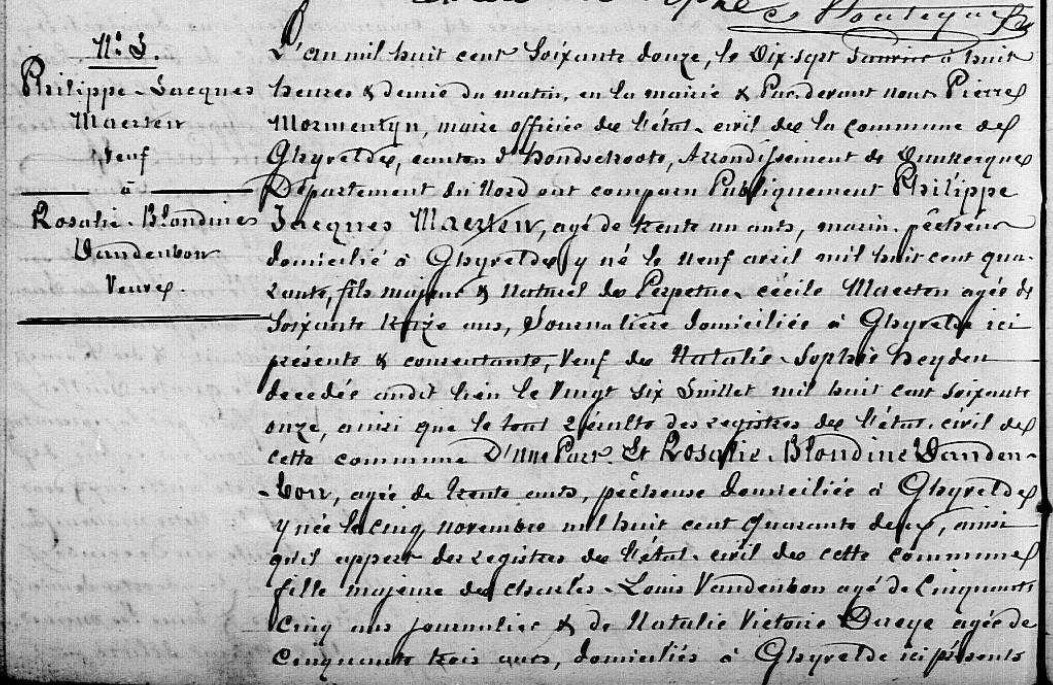 N° 3.
Philippe-Jacques
Maerten
Veuf
à
Rosalie-Blondine
Vandenbon
Veuve.
L'an mil huit cent soixante douze, le Dix sept Janvier à huit
heures & demie du matin, en la mairie & Par devant nous Pierre
Mormentyn, maire officier de l'état-civil de la commune de
Ghyvelde, canton d'hondschoote, Arrondissement de Dunkerque
Département du Nord ont comparu Publiquement Philippe
Jacques Maerten, agé de trente un ans, marin-pêcheur
domicilié à Ghyvelde y né le neuf avril mil huit cent qua-
rante, fils majeur & naturel de Perpetue-cécile Maerten agée de
soixante treize ans, Journalière domiciliée à Ghyvelde ici
présente & consentante, Veuf de Natalie-Sophie heyden
decedée audit lieu le Vingt six Juillet mil huit cent soixante
onze, ainsi que le tout résulte des registres de l'état-civil de
cette commune D'une Part. Et Rosalie-Blondine Vanden-
-bon, agée de trente ans, pêcheuse domiciliée à Ghyvelde
y née le cinq novembre mil huit cent quarante deux, ainsi
qu'il appert des registres de l'état-civil de cette commune
fille majeure de charles-Louis Vandenbon agé de Cinquante
Cinq ans journalier & de Natalie Victoire agée de
Cinquante trois ans, domiciliés à Ghyvelde ici présents